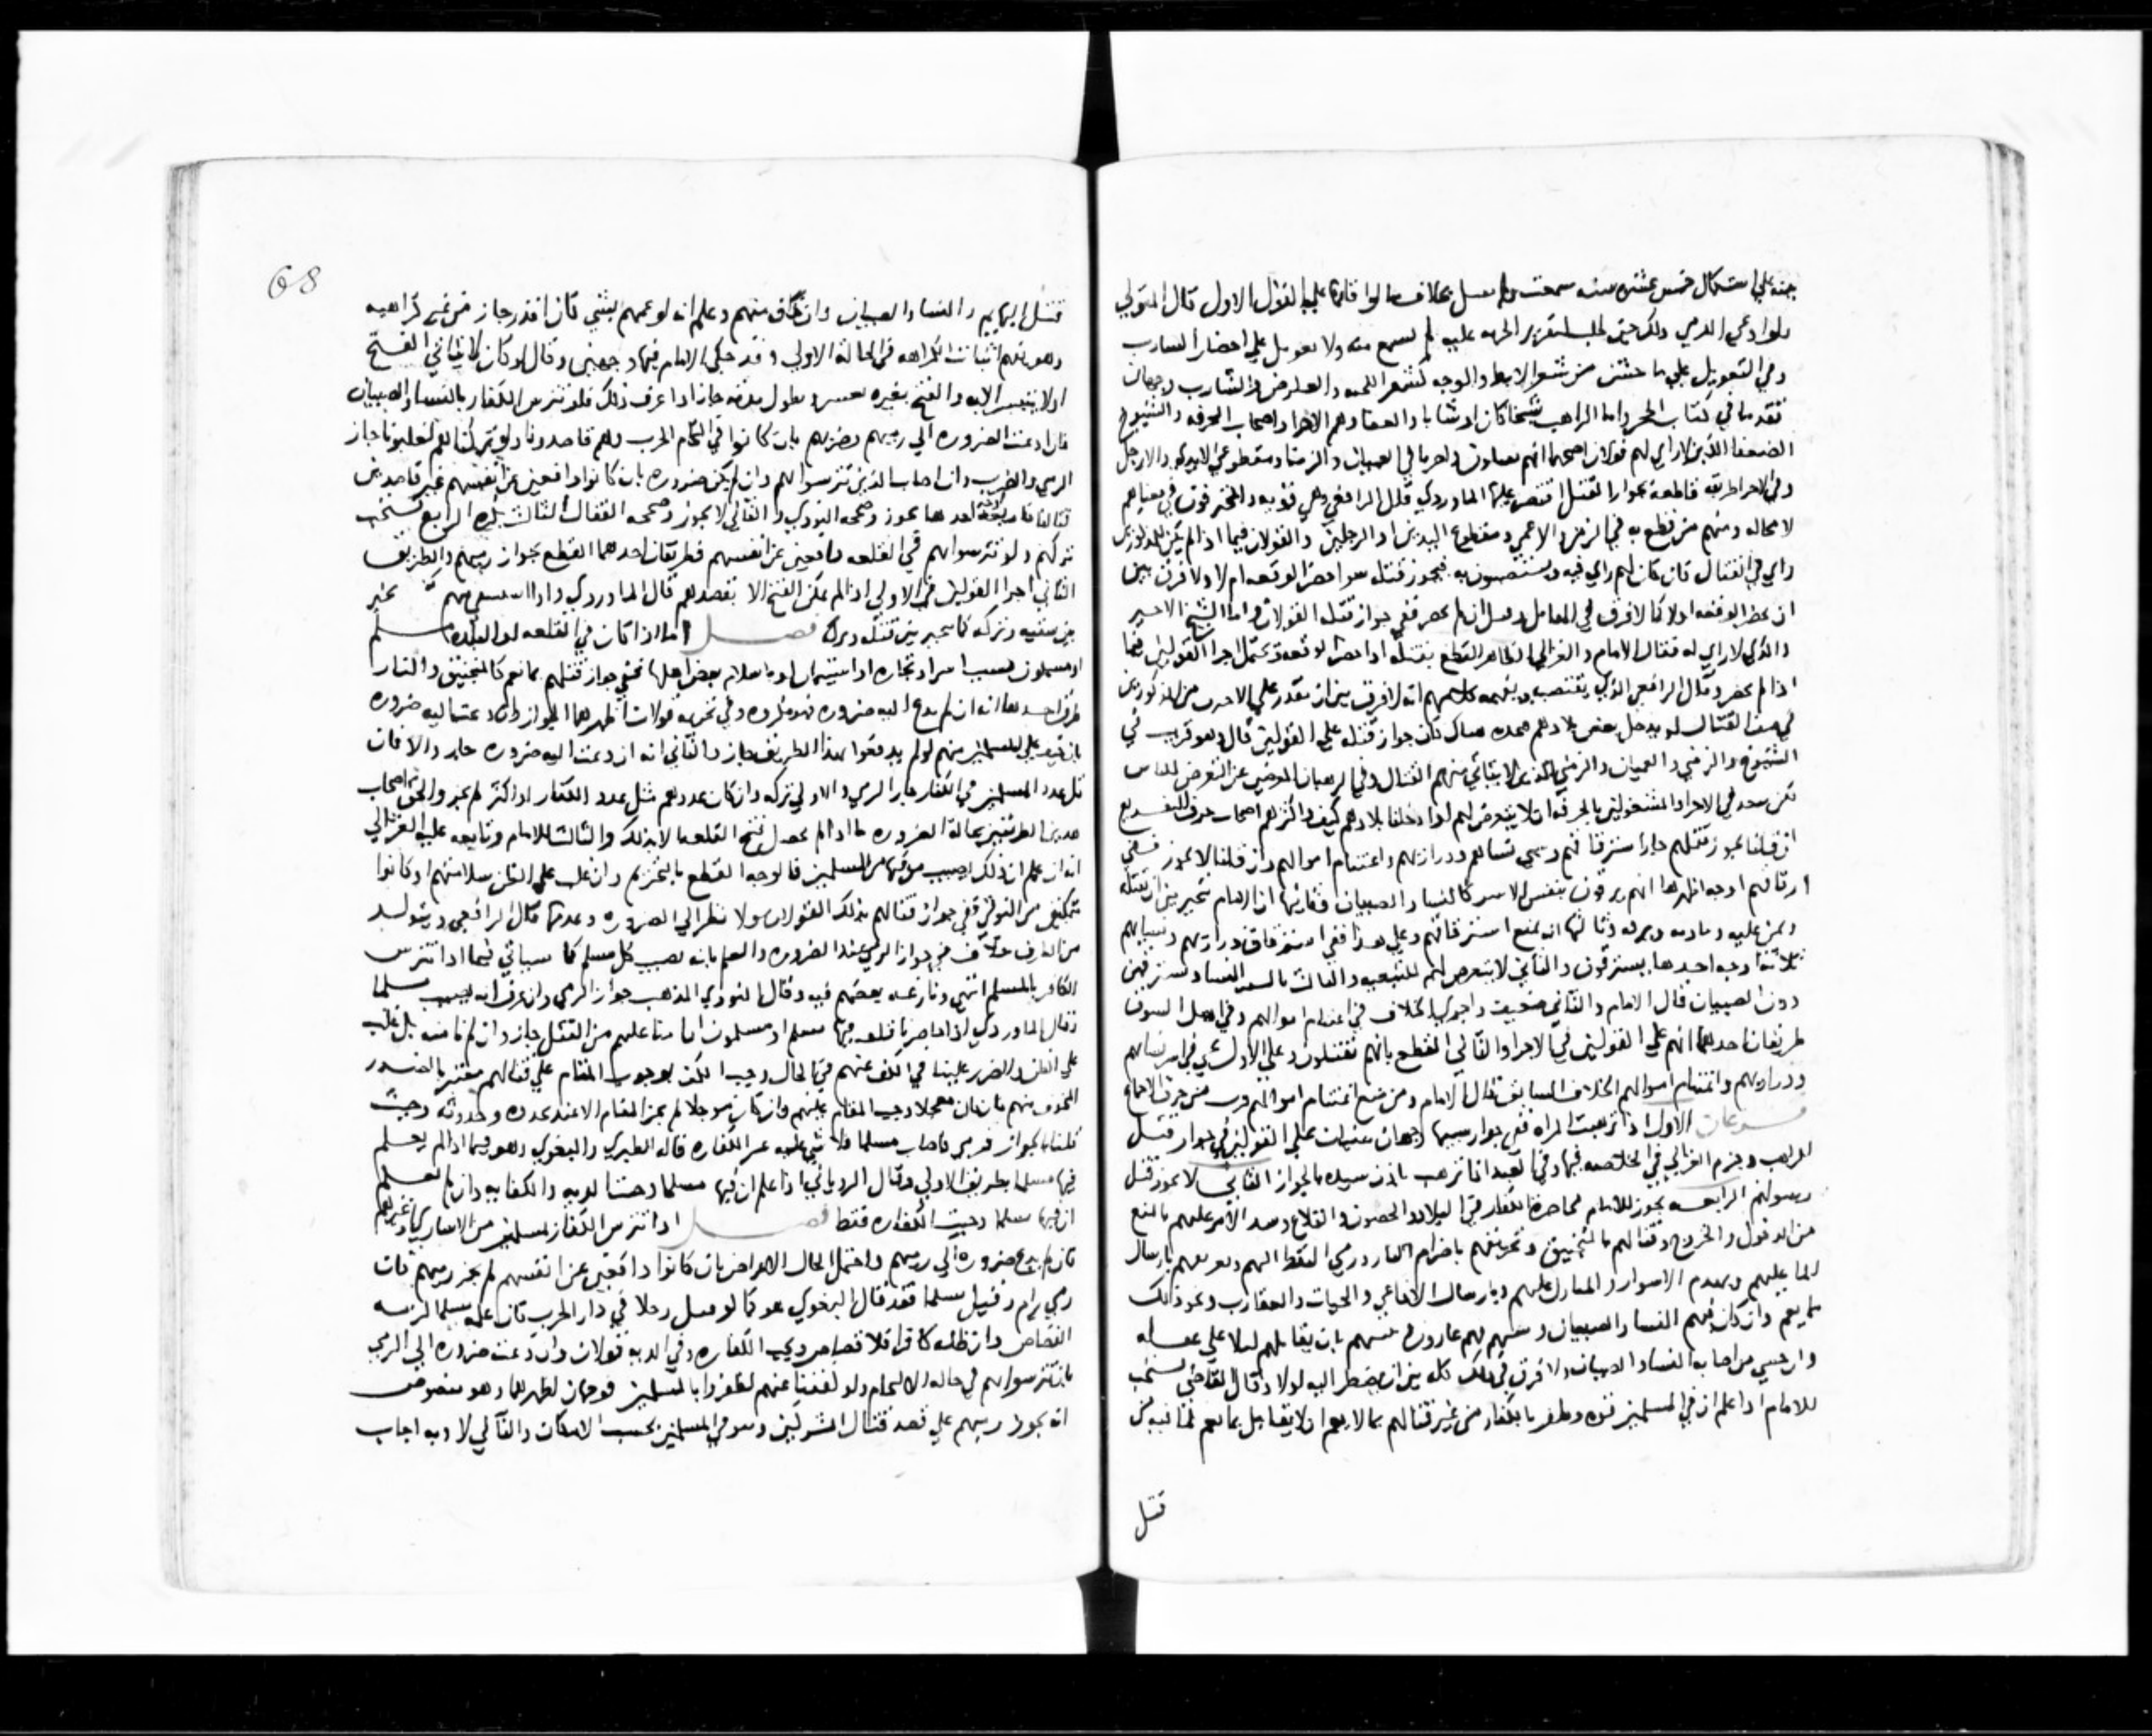 بينه علي استكمال خمس عشره سنه سمعت ولم يقتل بخلاف ما لو اقامها علي القول الاول قال المتولي
ولو ادعي الذمي ذلك حين طلب لتقرير الجزيه عليه لم يسمع منه ولا تعويل علي اخضرار الشارب
وفي التعويل علي ما خشن من شعر الابط والوجه كشعر اللحيه والعارض والشارب وجهان
تقدما في كتاب الحجر واما الراهب شيخا كان او شابا والعسفا وهم الاجرا واصحاب الحرفه والشيوخ
الضعفا الذين لا راي لهم قولان اصحهما انهم يقتلون واجريا في العميان والزمنا ومقطوعي الايدي والارجل
وفي الاجرا طريقه قاطعه بجواز القتل اقتصر عليها الماوردي قال الرافعي وهي قويه والمحترفون في معناهم
لا محاله ومنهم من قطع به في الزمن والاعمي ومقطوع اليدين او الرجلين والقولان فيما اذا لم يكن للمذكورين
راي في القتال فان كان لهم راي فيه ويستنصحون به فيجوز قتله سوا حضر الوقعه ام لا ولا فرق بين
ان يحضر الوقعه اولا كما لا فرق في المقاتل وقيل ان لم يحضر ففي جواز قتله القولان واما الشيخ الاخير
والذي لا راي له فقال الامام والغزالي الظاهر القطع بقتله اذا حضر الوقعه ويحتمل اجرا القولين فيما
اذا لم يحضر وقال الرافعي الذي يقتضيه كلامهم انه لا فرق بين ان يقدر علي الاخرين من المذكورين
في صف القتال او يدخل بعض بلادهم فنجده هناك فان جواز قتله علي القولين قال وهو قريب في
الشيوخ والزمني والعميان والزمني الذين لا يتاتي منهم القتال وفي الرهبان المعرضين عن التعرض للناس
لكن يبعد في الاجرا والمشتغلين بالحرفه ان لا يتعرض لهم لو دخلنا بلادهم كيف واكثرهم اصحاب حرف
ان قلنا يجوز قتلهم جاز استرقاقهم وسبي نسائهم وذراريهم واغتنام اموالهم وان قلنا لا يجوز ففي
ارقاقهم اوجه اظهرها انهم يرقون بنفس الاسر كالنسا والصبيان وثانيها ان الامام يتخير بين ان يقتله
ويمن عليه ويفاديه ويرقه وثالثها انه يمتنع استرقاقهم وعلي هذا ففي استرقاق ذراريهم ونسائهم
ثلاثه اوجه احدها يسترقون والثاني لا يتعرض لهم للتبعيه والثالث النسا يسترقين
دون الصبيان قال الامام والثاني ضعيف واجري الخلاف في اغتنام اموالهم وفي اهل السوق
طريقان احدهما انهم علي القولين في الاجرا والثاني القطع بانهم يقتلون وعلي الاول في سبي نسائهم
وذراريهم واغتنام اموالهم الخلاف السابق قال الامام ومن منع اغتنام اموالهم قرب من خرق الاجماع
فروعات الاول اذا ترهبت المراه ففي جواز سبيها وجهان مبنيان علي القولين في جواز قتل
الراهب وجزم الغزالي في الخلاصه فيها وفي العبد اذا ترهب باذن سيده بالجواز الثاني لا يجوز قتل
رسولهم الرابعه يجوز للامام محاصره الكفار في البلاد والحصون والقلاع وسد الامر عليهم بالمنع
من الدخول والخروج وقتالهم بالمنجنيق وتحريقهم باضرام النار ورمي النفط اليهم وتغريقهم بارسال
الما عليهم وبهدم الاسوار والمنازل عليهم وبارسال الافاعي والحيات والعقارب ونحو ذلك
مما يعم وان كان فيهم النسا والصبيان
وان خشي من اصابه النسا والصبيان ولا فرق في ذلك كله بين ان يضطر اليه اولا وقال القاضي يستحب
للامام اذا علم ان في المسلمين قوه وظفر بالكفار من غير قتالهم بما لا يعم ان لا يقاتل بما يعم لما فيه من
قتل
68
قتل البهايم والنسا والصبيان وان خاف منهم وعلم انه لو عمهم بشي كان اقدر جاز من غير كراهيه
وهو يفهم اثبات الكراهه في الحاله الاولي وقد حكي الامام فيها وجهين وقال لو كان لا يتاتي الفتح
او لا يتيسر الا به والفتح بغيره يعسر ويطول مدته جاز اذا عرف ذلك فلو تترس الكفار بالنسا والصبيان
فان دعت الضروره الي رميهم وضربهم بان كانوا في التحام الحرب وهم قاصدونا ولو تركناهم لغلبونا جاز
الرمي والضرب وان اصاب الذين تترسوا بهم وان لم يكن ضروره بان كانوا دافعين عن انفسهم غير قاصدين
قتالنا فاربعه اوجه احدها يجوز وصححه النووي والثاني لا يجوز وصححه القفال الثالث يكره الرابع يستحب
تركهم ولو تترسوا بهم في القلعه دافعين عن انفسهم فطريقان احدهما القطع بجواز رميهم والطريق
الثاني اجرا القولين في الاولي اذا لم يمكن الفتح الا بقصدهم قال الماوردي واذا تخير
بين سبيه وتركه كما يتخير بين قتله وتركه فصل اما اذا كان في القلعه او البلده مسلم
او مسلمون بسبب اسر او تجاره او استيمان او باسلام بعض اهلها ففي جواز قتلهم بما يعم كالمنجنيق والنار
طرق احدها انه ان لم يدع اليه ضروره فهو مكروه وفي تحريمه قولان اظهرهما الجواز وان دعت اليه ضروره
بان خيف علي المسلمين منهم لو لم يدفعوا بهذا الطريق جاز والثاني انه ان دعت اليه ضروره جاز والا فان
قل عدد المسلمين في الكفار جاز الرمي والاولي تركه وان كان عددهم مثل عدد الكفار او اكثر لم يجز والحق اصحاب
هذين الطريقين بحاله الضروره ما اذا لم يحصل فتح القلعه الا بذلك والثالث للامام وتابعه عليه الغزالي
انه ان علم ان ذلك يصيب من فيها من المسلمين فالوجه القطع بالتحريم وان غلب علي الظن سلامتهم او كانوا
متمكنين من التوقي ففي جواز قتالهم بذلك القولان ولا نظر الي الضروره وعدمها قال الرافعي ويتولد
من الطرق خلاف في جواز الرمي عند الضروره والعلم بانه يصيب كل مسلم كما سياتي فيما اذا تترس
الكافر بالمسلم انتهي ونازعه بعضهم فيه وقال النووي المذهب جواز الرمي وان عرف انه يصيب مسلما
وقال الماوردي اذا حاصرنا قلعه فيها مسلم او مسلمون امنا عليهم من القتل جاز وان لم نامنه بل غلب
علي الظن والضرر علينا في الكف عنهم في الحال وجب الكف بوجوب المقام علي قتالهم معتبر بالضرر
المخوف منهم فان كان معجلا وجب المقام عليهم وان كان موجلا لم يجز المقام الا عند تجدده وحدوثه وحيث
قلنا بالجواز فرمي فاصاب مسلما فلا شي عليه غير الكفاره قاله الطبري والبغوي وهو فيما اذا لم يعلم
فيها مسلما بطريق الاولي وقال الروياني اذا علم ان فيها مسلما وجبت الديه والكفاره وان لم يعلم
ان فيها مسلما وجبت الكفاره فقط فصل اذا تترس الكفار بمسلمين من الاساري وغيرهم
فان لم يدع ضروره الي رميهم واحتمل الحال الاعراض بان كانوا دافعين عن انفسهم لم يجز رميهم فان
رمي رام وقتل مسلما فقد قال البغوي هو كما لو قتل رجلا في دار الحرب فان علمه مسلما لزمه
القصاص وان ظنه كافرا فلا قصاص وتجب الكفاره وفي الديه قولان وان دعت ضروره الي الرمي
بان تترسوا بهم في حاله الالتحام ولو كففنا عنهم لظفروا بالمسلمين فوجهان اظهرهما وهو منصوص
انه يجوز رميهم علي قصد قتال المشركين وتوقي المسلمين بحسب الامكان والثاني لا وبه اجاب